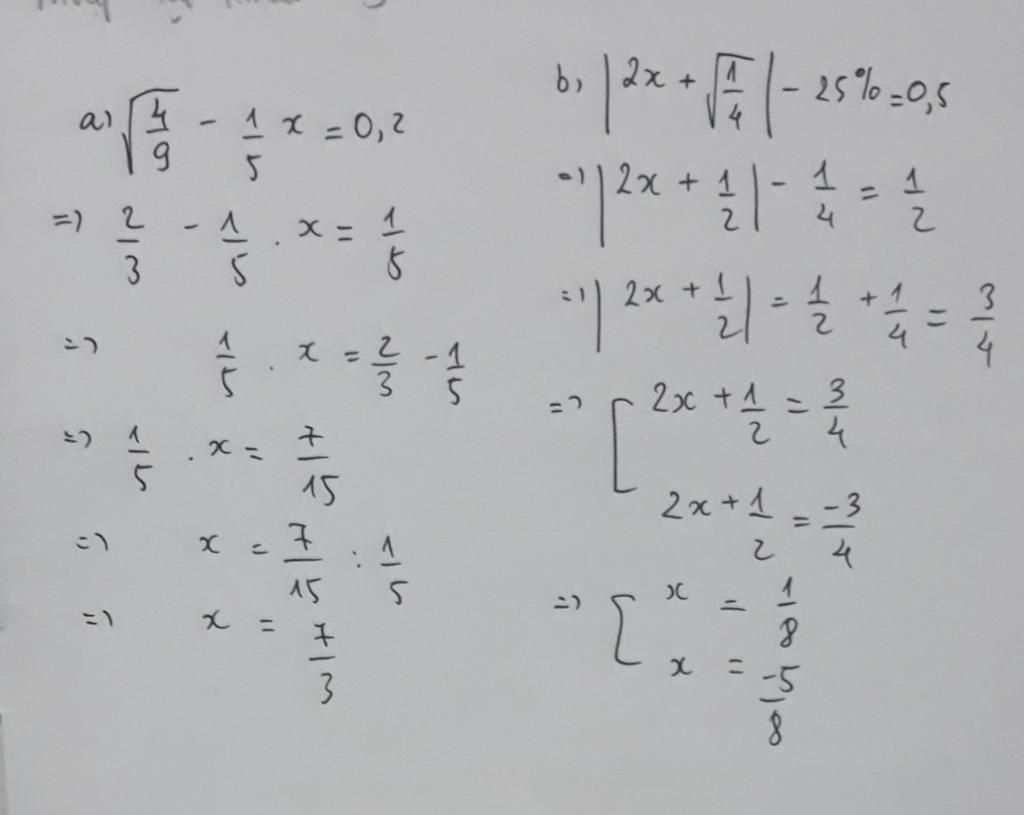 a) √(4/9) - 1/5 x = 0,2
=> 2/3 - 1/5 . x = 1/5
=> 1/5 . x = 2/3 - 1/5
=> 1/5 . x = 7/15
=> x = 7/15 : 1/5
=> x = 7/3
b, |2x + √(1/4)| - 25% = 0,5
=> |2x + 1/2| - 1/4 = 1/2
=> |2x + 1/2| = 1/2 + 1/4 = 3/4
=> [ 2x + 1/2 = 3/4
2x + 1/2 = -3/4
=> [ x = 1/8
x = -5/8